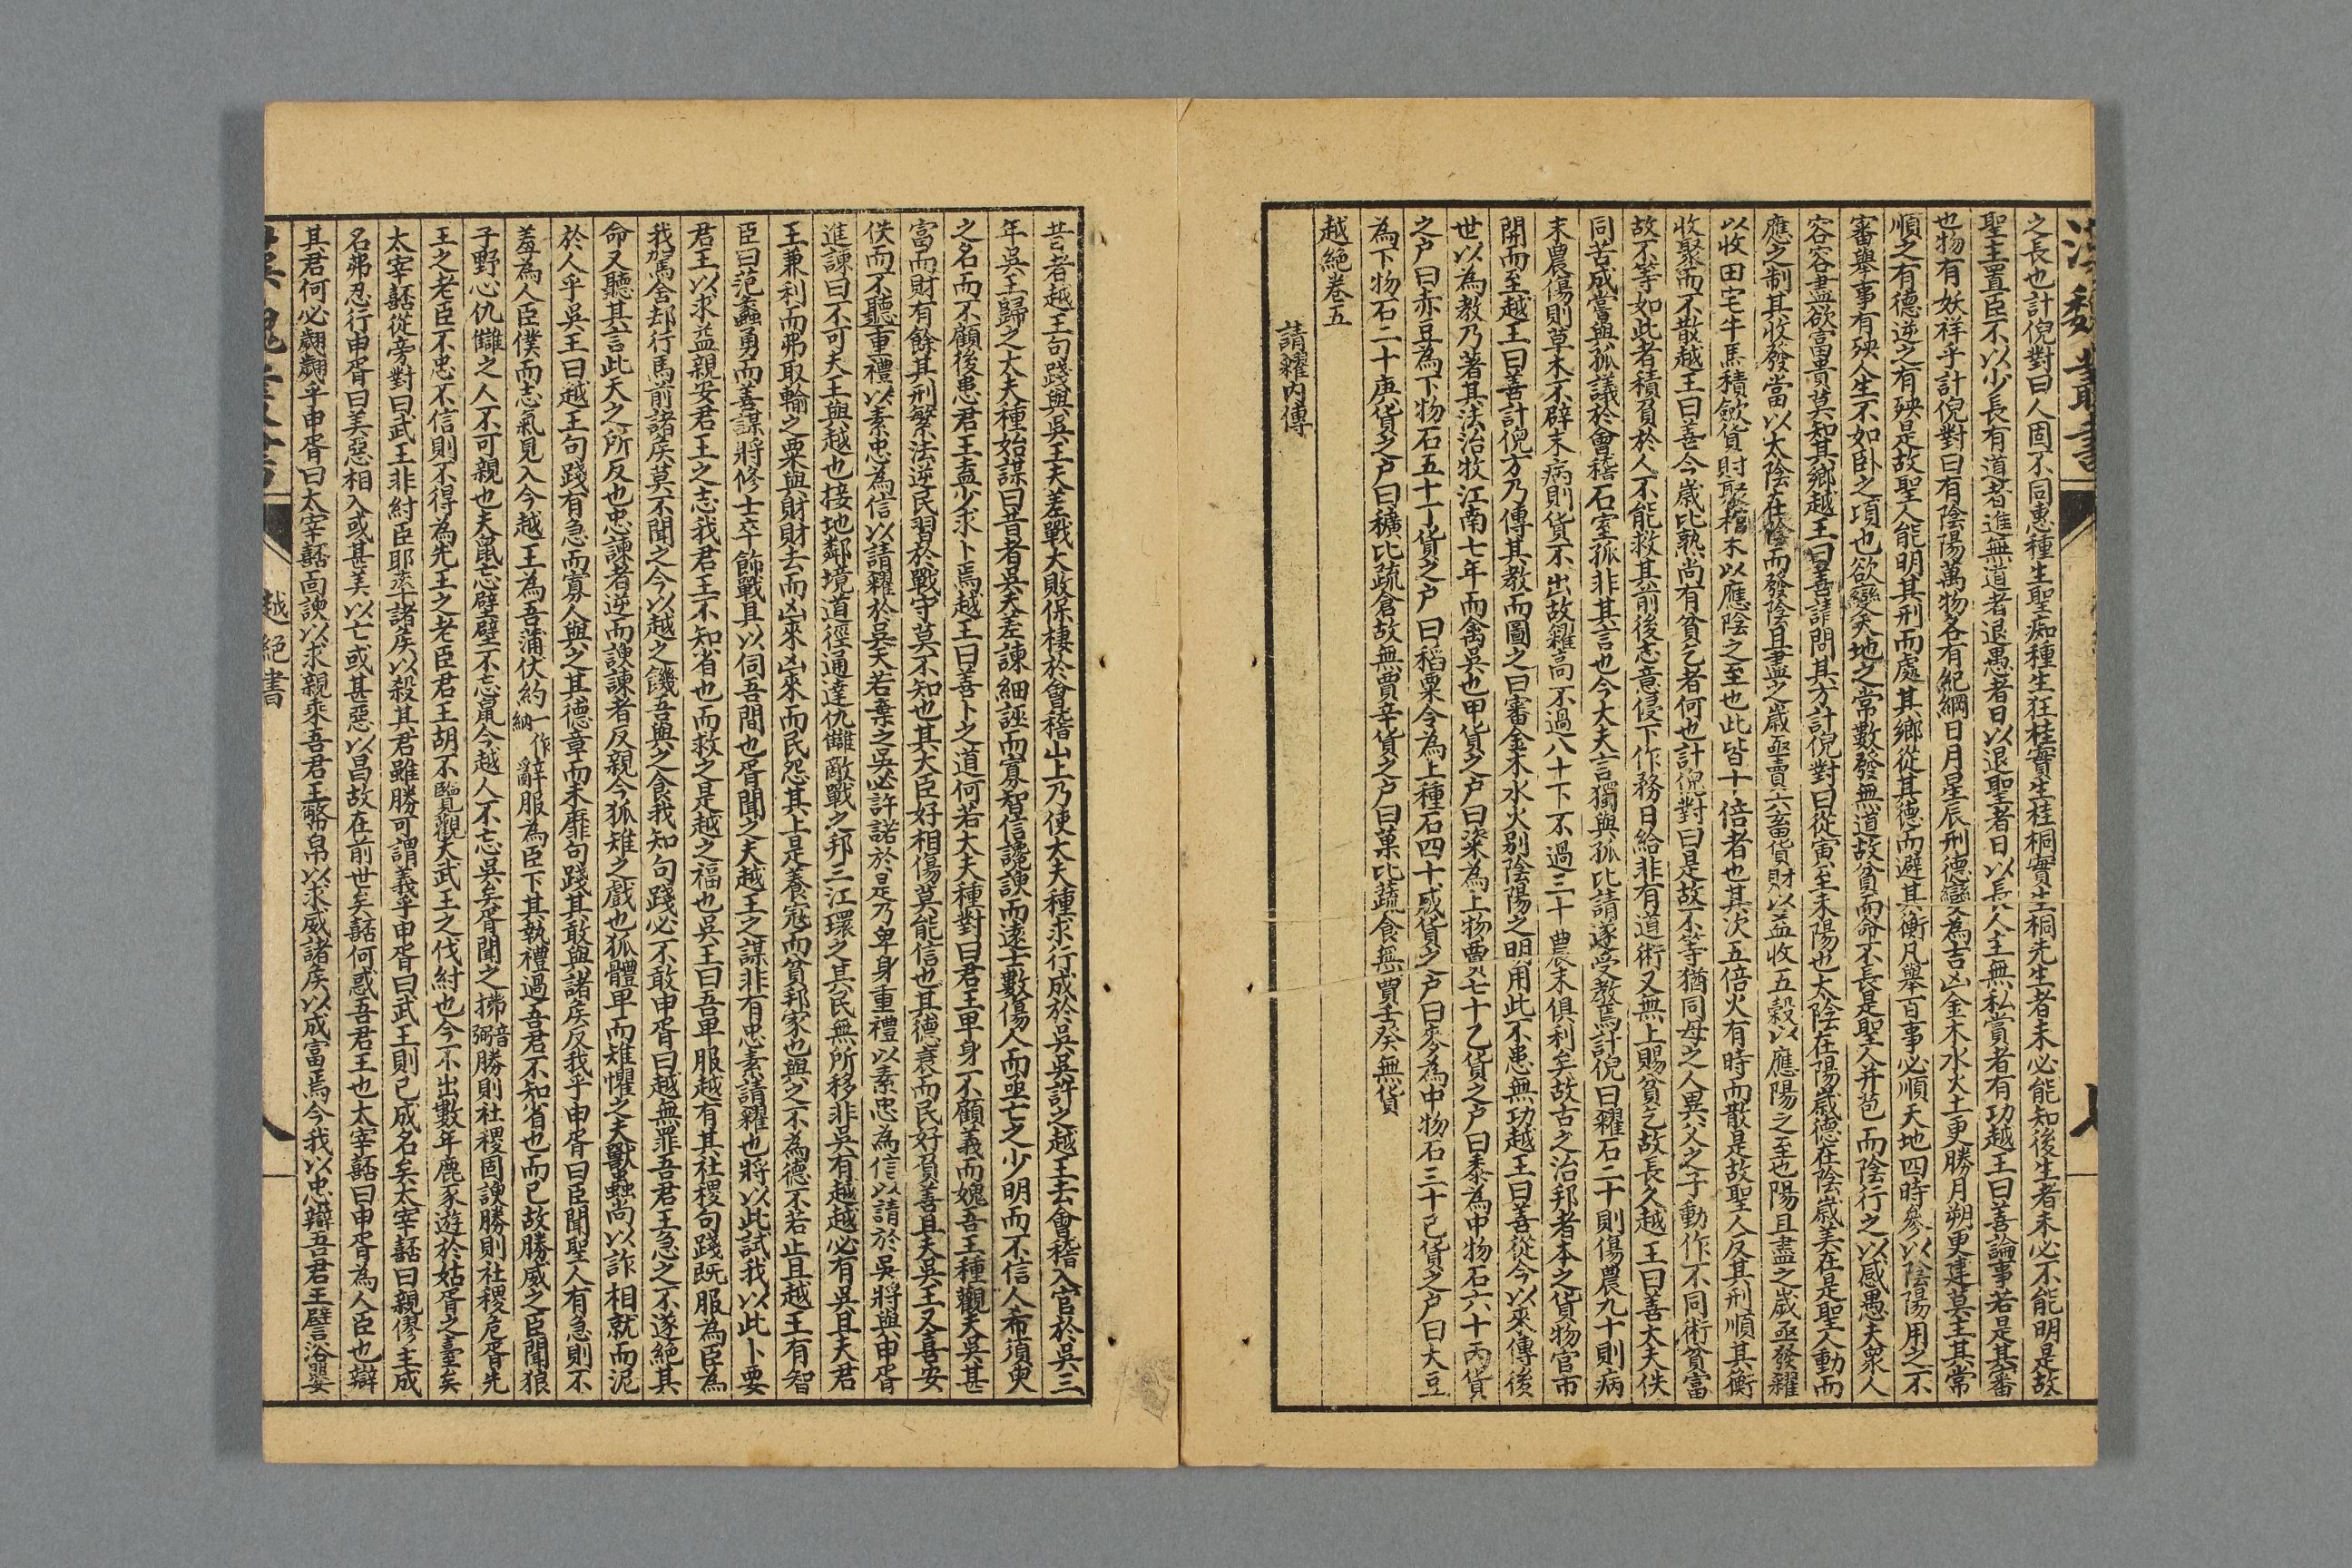 之長也計倪對曰人固不同惠種生聖痴種生狂桂實生桂桐實生桐先生者未必能知後生者未必不能明是故
聖主置臣不以少長有道者進無道者退愚者日以退聖者日以長人主無私賞者有功越王曰善論事若是其審
也物有妖祥乎計倪對曰有陰陽萬物各有紀綱日月星辰刑德變為吉凶金木水火土更勝月朔更建莫主其常
順之有德逆之有殃是故聖人能明其刑而處其鄉從其德而避其衡凡舉百事必順天地四時參以陰陽用之不
審舉事有殃人生不如卧之頃也欲變天地之常數發無道故貧而命不長是聖人并苞而陰行之以感愚夫衆人
容容盡欲富貴莫知其鄉越王曰善請問其方計倪對曰從寅至未陽也太陰在陽歲德在陰歲美在是聖人動而
應之制其收發當以太陰在陰而發陰且盡之歲亟賣六畜貨財以益收五穀以應陽之至也陽且盡之歲亟發糴
以收田宅牛馬積歛貨財聚棺木以應陰之至也此皆十倍者也其次五倍火有時而散是故聖人反其刑順其衡
收聚而不散越王曰善今歲比熟尚有貧乞者何也計倪對曰是故不等猶同母之人異父之子動作不同術貧富
故不等如此者積負於人不能救其前後志意侵下作務日給非有道術又無上賜貧乞故長久越王曰善大夫佚
同苦成嘗與孤議於會稽石室孤非其言也今大夫言獨與孤比請遂受教焉計倪曰糴石二十則傷農九十則病
末農傷則草木不辟末病則貨不出故糴高不過八十下不過三十農末俱利矣故古之治邦者本之貨物官市
開而至越王曰善計倪乃傳其教而圖之曰審金木水火别陰陽之明用此不患無功越王曰善從今以來傳後
世以為教乃著其法治牧江南七年而禽吳也甲貨之户曰粢為上物賈七十乙貨之户曰黍為中物石六十丙貨
之户曰赤豆為下物石五十丁貨之户曰稻粟令為上種石四十戊貨之户曰麥為中物石三十己貨之户曰大豆
為下物石二十庚貨之户曰穬比疏倉故無賈辛貨之户曰菓比蔬食無賈壬癸無貨
越絶卷五
請糴內傳
昔者越王句踐與吳王夫差戰大敗保棲於會稽山上乃使大夫種求行成於吳吳許之越王去會稽入官於吳三
年吳王歸之大夫種始謀曰昔者吳夫差諫細誣而寡智信讒諛而遠士數傷人而亟亡之少明而不信人希須臾
之名而不顧後患君王盍少求卜焉越王曰善卜之道何若大夫種對曰君王卑身不顧義而媿吾王種觀夫吳甚
富而財有餘其刑繁法逆民習於戰守莫不知也其大臣好相傷莫能信也其德衰而民好負善且夫吳王又喜安
佚而不聽重禮以素忠為信以請糴於吳天若棄之吳必許諾於是乃卑身重禮以素忠為信以請於吳將與申胥
進諫曰不可夫王與越也接地鄰境道徑通達仇讎敵戰之邦三江環之其民無所移非吳有越越必有吳且夫君
王兼利而弗取輸之粟與財財去而凶來凶來而民怨其上是養寇而貧邦家也與之不為德不若止且越王有智
臣曰范蠡勇而善謀將修士卒飾戰具以伺吾間也胥聞之夫越王之謀非有忠素請糴也將以此試我以此卜要
君王以求益親安君王之志我君王不知省也而救之是越之福也吳王曰吾卑服越有其社稷句踐既服為臣為
我駕舍却行馬前諸侯莫不聞之今以越之饑吾與之食我知句踐必不敢申胥曰越無罪吾君王急之不遂絕其
命又聽其言此天之所反也忠諫者逆而諛諫者反親今狐雉之戲也狐體卑而雉懼之夫獸蟲尚以詐相就而況
於人乎吳王曰越王句踐有急而寡人與之其德章而未靡句踐其敢與諸侯反我乎申胥曰臣聞聖人有急則不
羞為人臣僕而志氣見入今越王為吾蒲伏約一作納辭服為臣下其執禮過吾君不知省也而已故勝威之臣聞狼
子野心仇讎之人不可親也夫鼠忘壁壁不忘鼠今越人不忘吳矣胥聞之拂音弼勝則社稷固諛勝則社稷危胥先
王之老臣不忠不信則不得為先王之老臣君王胡不覽觀夫武王之伐紂也今不出數年鹿豕遊於姑胥之臺矣
太宰嚭從旁對曰武王非紂臣耶率諸侯以殺其君雖勝可謂義乎申胥曰武王則已成名矣太宰嚭曰親僇主成
名弗忍行申胥曰美惡相入或甚美以亡或甚惡以昌故在前世矣嚭何惑吾君王也太宰嚭曰申胥為人臣也辯
其君何必翽翽乎申胥曰太宰嚭面諛以求親乘吾君王幣帛以求威諸侯以成富焉今我以忠辯吾君王譬浴嬰
越絶書